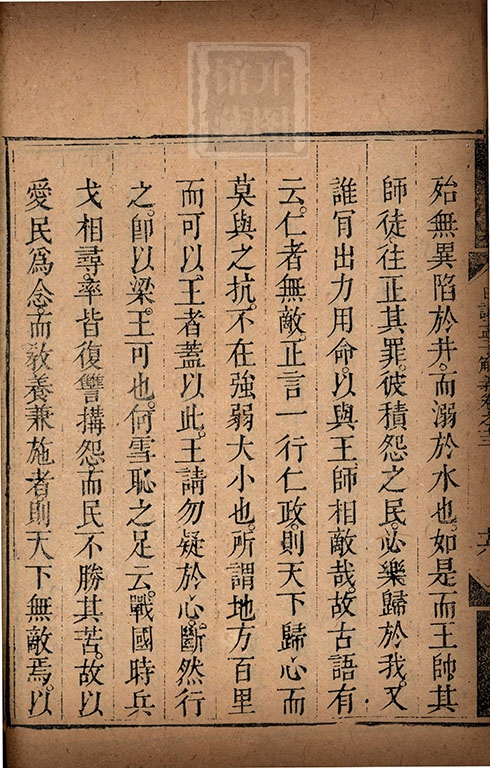 殆無異陷於井而溺於水也如是而王帥其
師徒往正其罪彼積怨之民必樂歸於我又
誰肎出力用命以與王師相敵哉故古語有
云仁者無敵正言一行仁政則天下歸心而
莫與之抗不在強弱大小也所謂地方百里
而可以王者蓋以此王請勿疑於心斷然行
之卽以梁王可也何雪恥之足云戰國時兵
戈相尋率皆復讐搆怨而民不勝其苦故以
愛民爲念而教養兼施者則天下無敵焉以